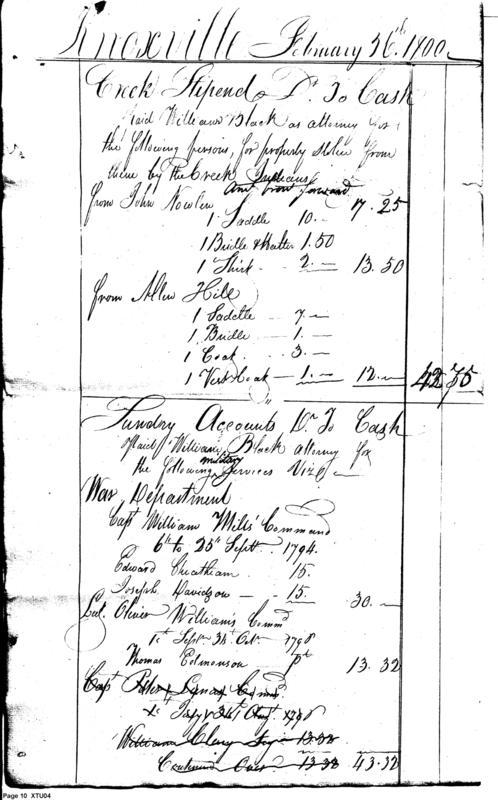 Knoxville February 26th. 1800
Creek Stipend Dr. To Cash
Paid William Black as attorney for
the following persons, for property stolen from
them by the Creek Indians
Amt brot forward 17.25
from John Nowlen
1 Saddle 10. —
1 Bridle & Halter 1.50
1 Shirt 2. — 13.50
from Allen Hill
1 Saddle — 7. —
1 Bridle — 1. —
1 Coat . 3. —
1 Vest Coat — 1. — 12. — 42.75
Sundry Accounts Dr. To Cash
Paid William Black attorney for
the following military Services Viz. —
War Department
Capt William Mills' Command
6th to 25th Sept. 1794.
Edward Cheatham 15.
Joseph Davidson — 15. 30. —
Lieut. Oliver William's Commd
Sept.
Thomas Edmonson 13.32
Capt Commd.
William Clary 13.32
Continued Over 13.32 43.32
Page 10 XTU04